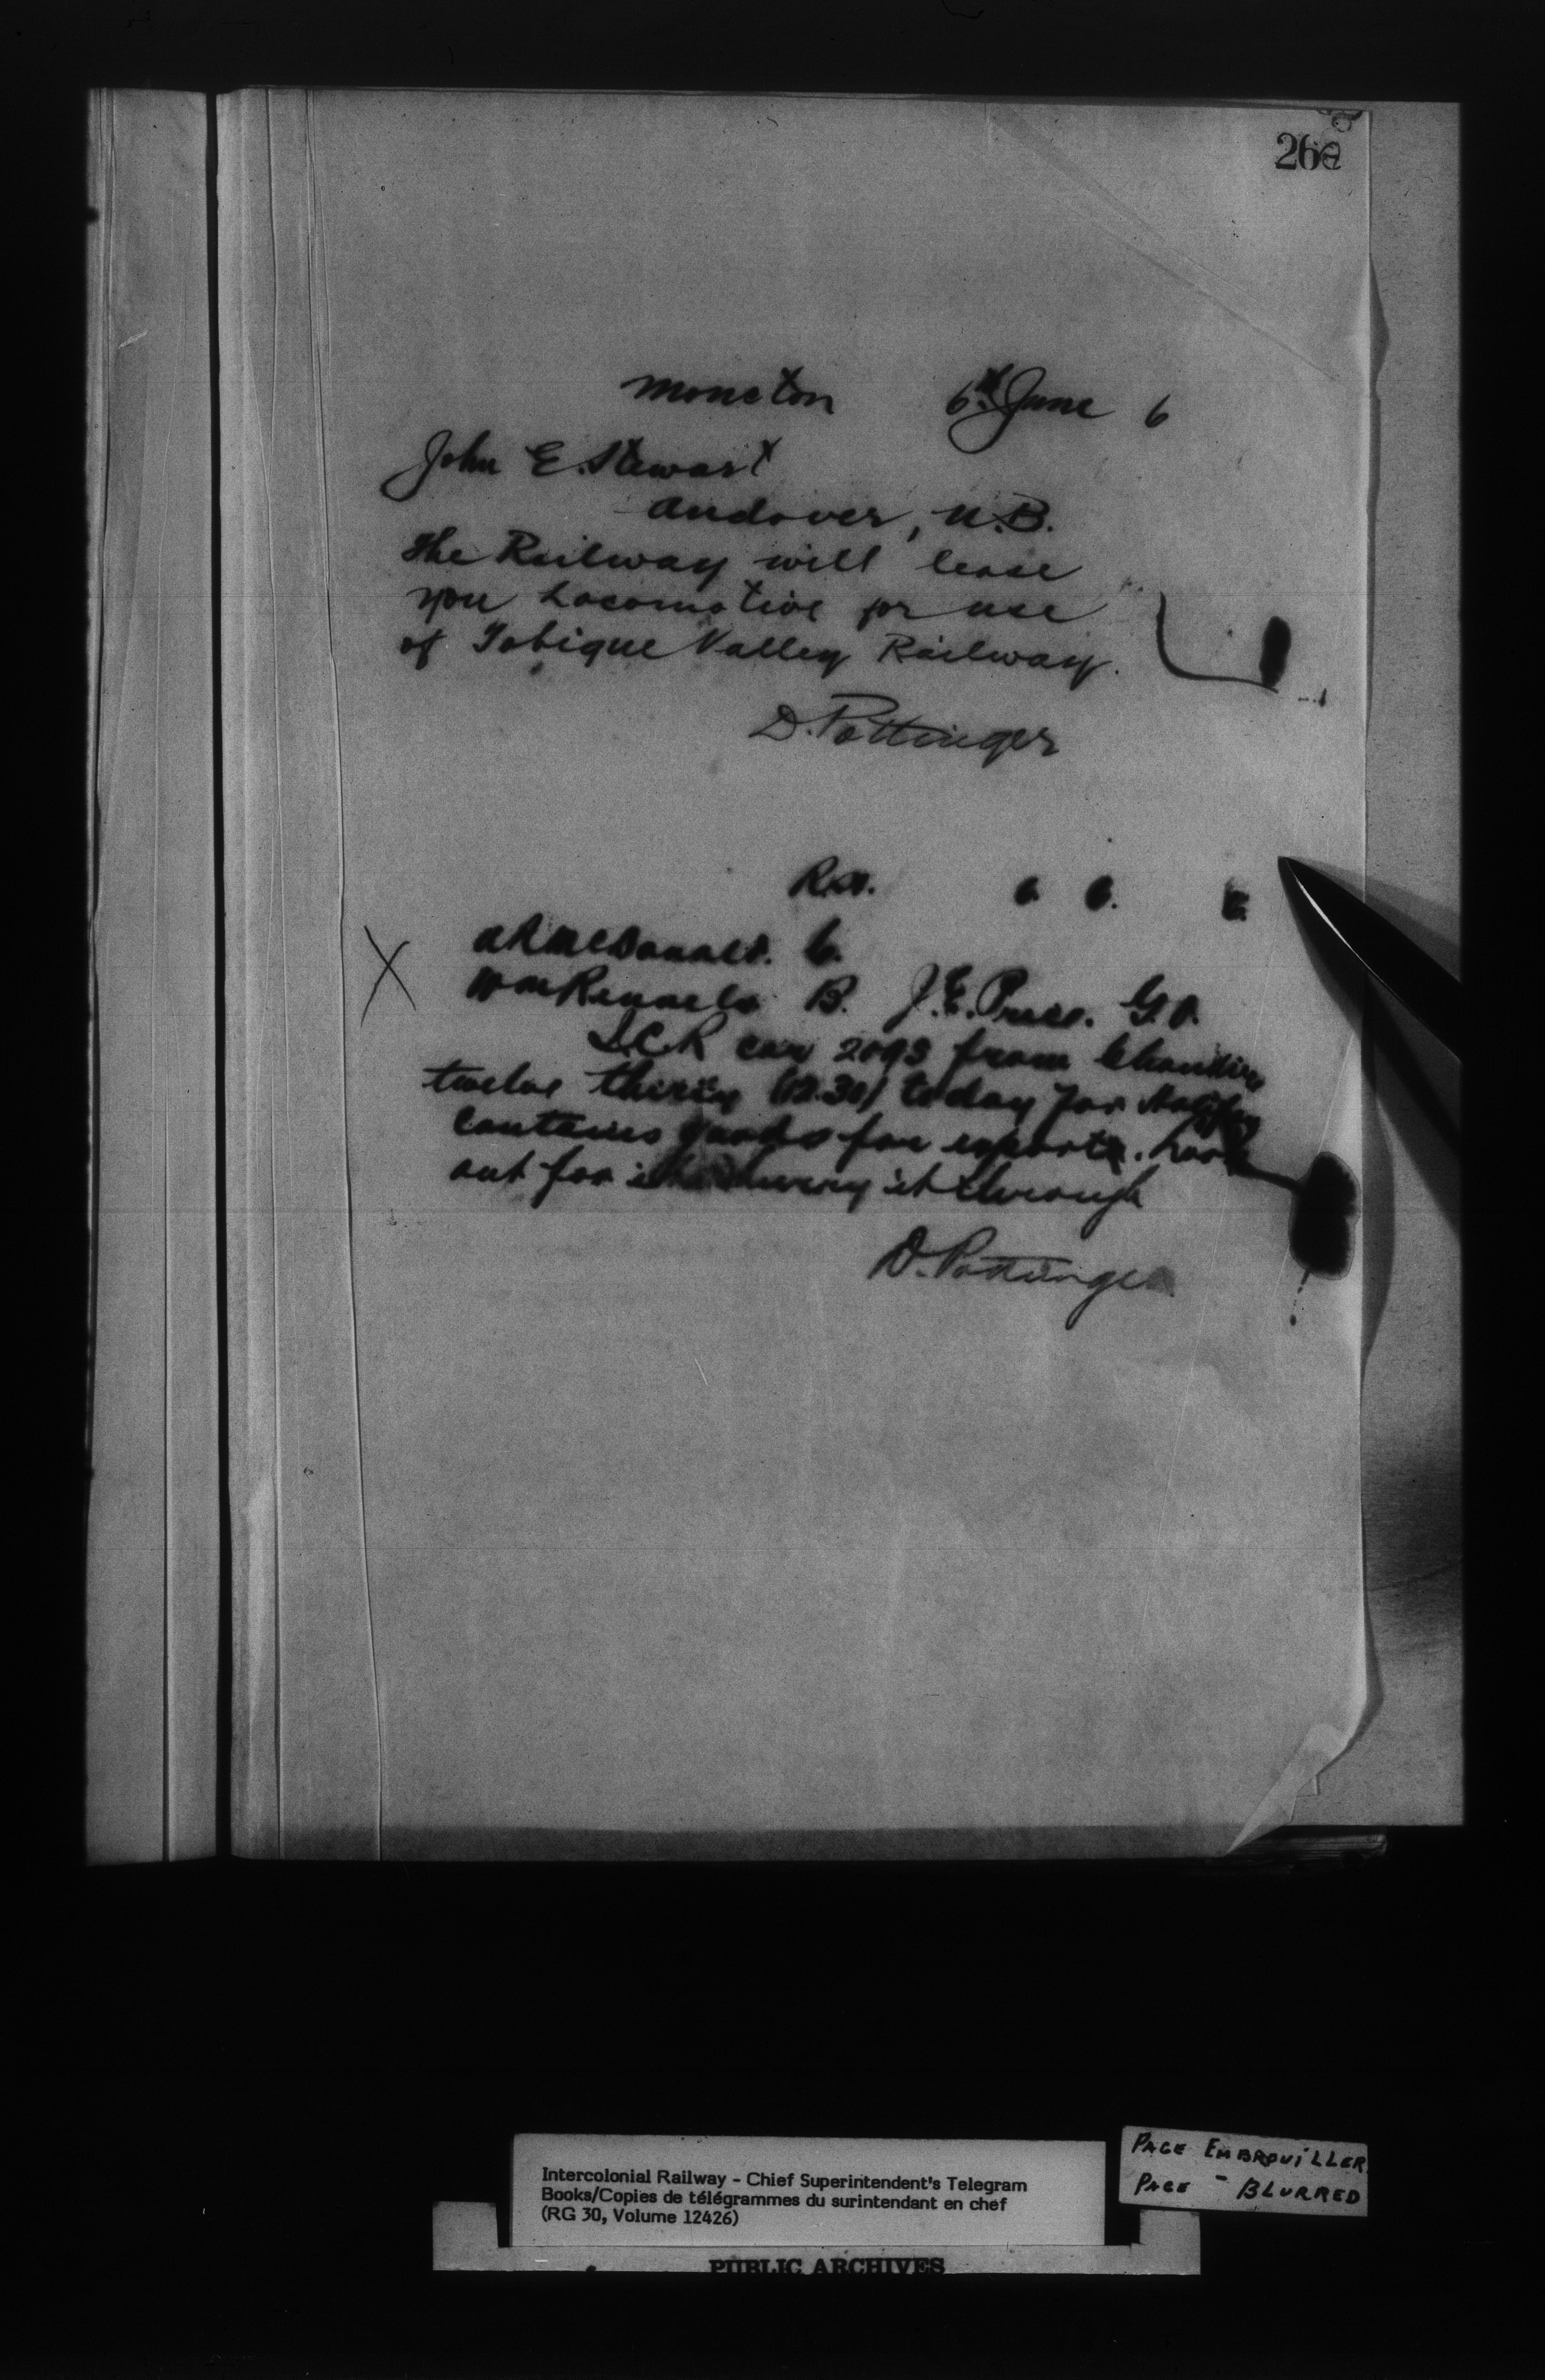 26
Moncton 6th June 6
John E. Stewart
Andover, N.B.
The Railway will lease
you Locomotive for use
of Tobique Valley Railway.
D. Pottinger
R.O. 6 6. 6.
A R McDonald. C.
Wm Rennels B. J.E. Price. G.O.
I.C.R car 2093 from Chaudiere
twelve thirty (12.30) today for Halifax
Contains goods for export. Look
out for it hurry it through
D. Pottinger
X
Intercolonial Railway - Chief Superintendent's Telegram
Books/Copies de télégrammes du surintendant en chef
(RG 30, Volume 12426)
PUBLIC ARCHIVES
PAGE EMBROUILLER
PAGE - BLURRED